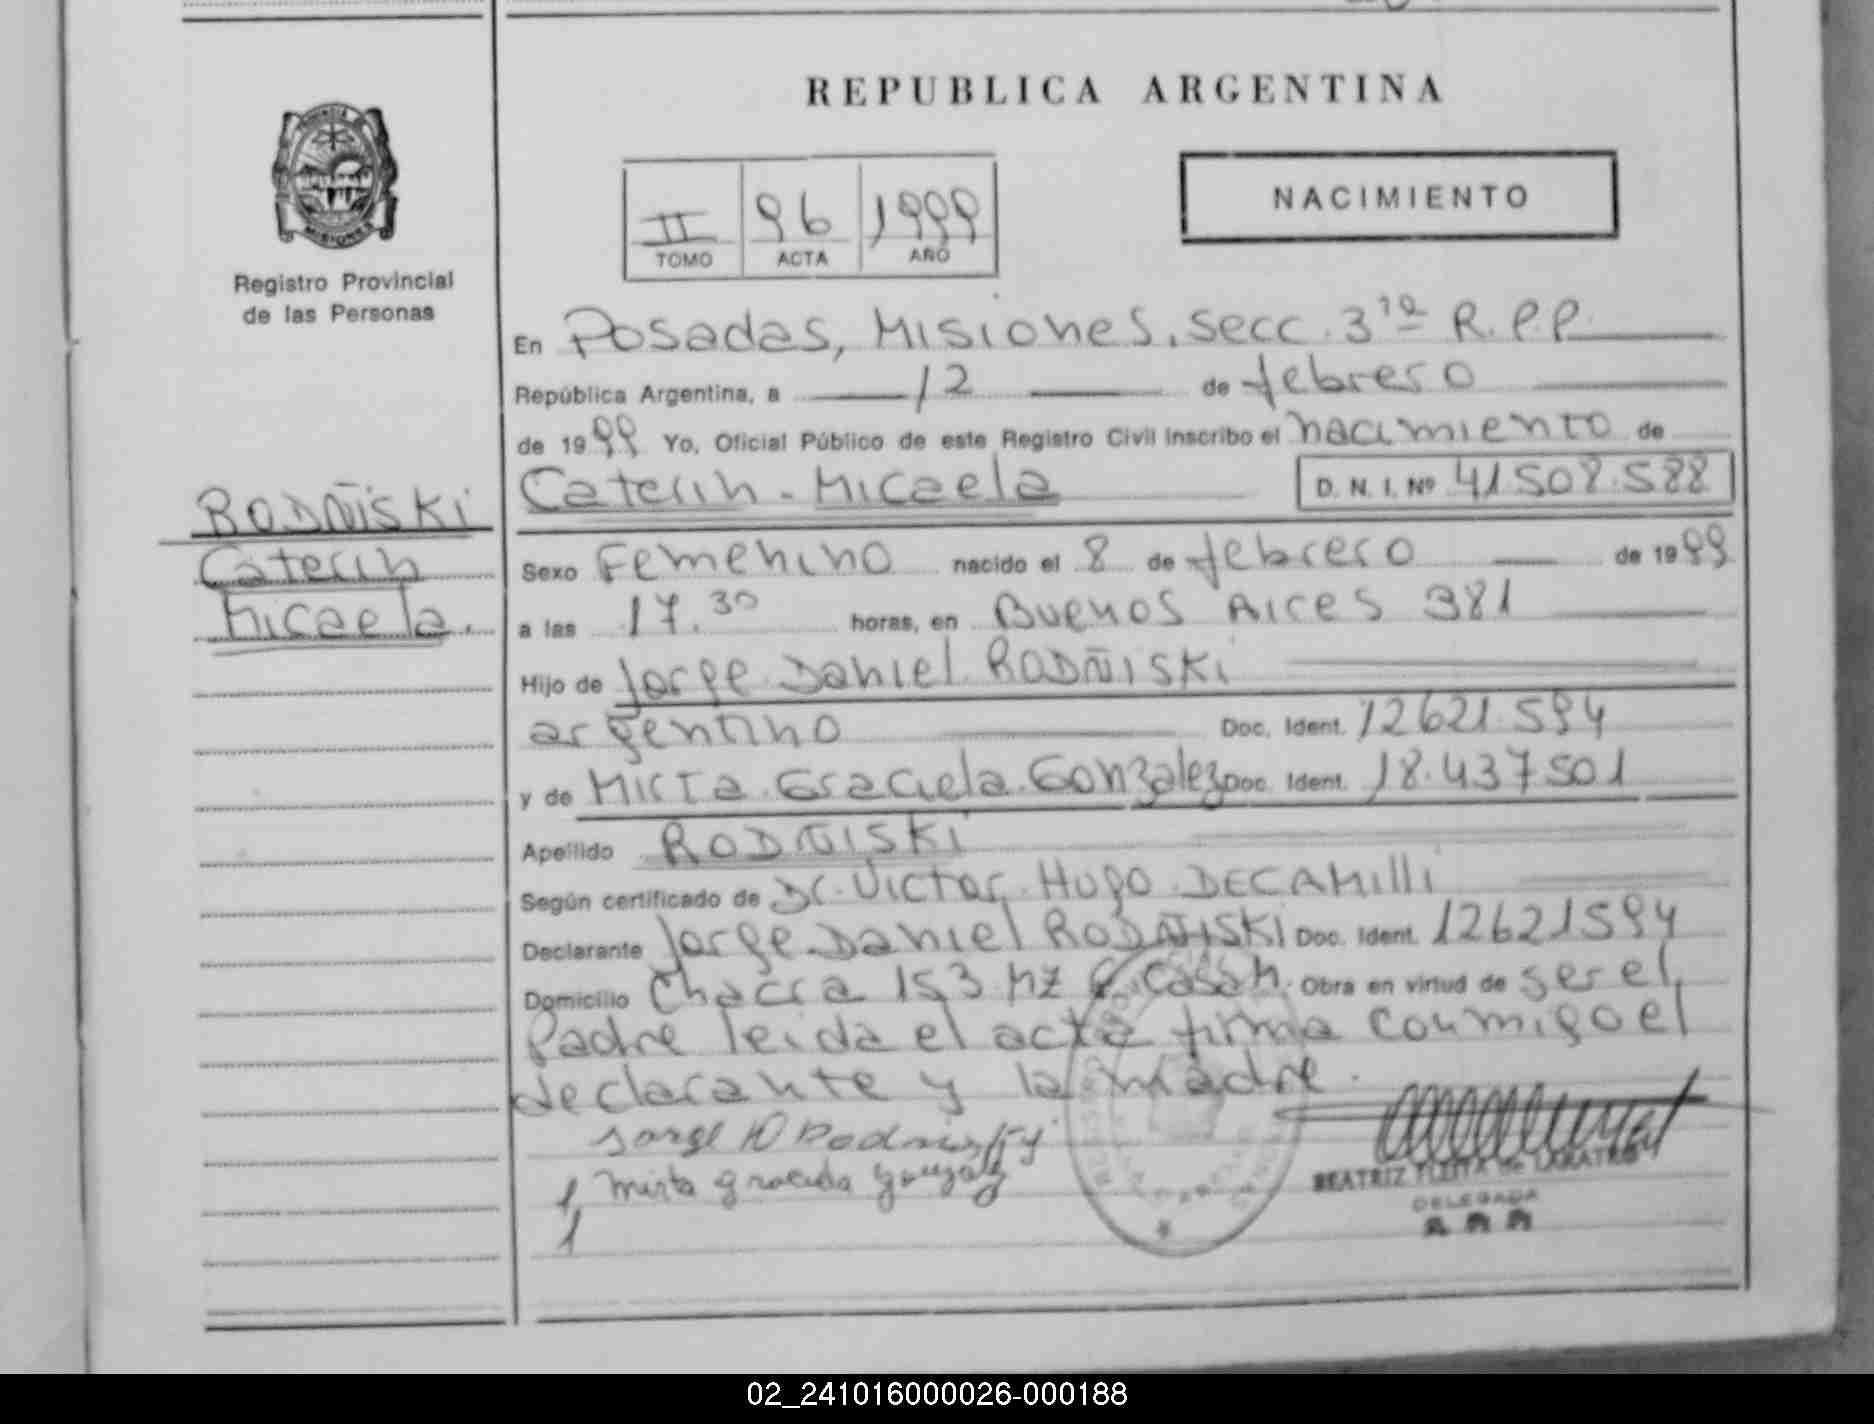 REPUBLICA ARGENTINA
NACIMIENTO
II 96 1999
TOMO ACTA AÑO
PROVINCIA DE
MISIONES
Registro Provincial
de las Personas
En Posadas, Misiones, secc. 3ra R.P.P.
República Argentina, a 12 de febrero
de 1999 Yo, Oficial Público de este Registro Civil inscribo el nacimiento de
Caterin Micaela D. N. I. Nº 41.508.588
RODÑISKI
Caterin
Micaela.
Sexo Femenino nacido el 8 de febrero de 1999
a las 17.30 horas, en Buenos Aires 381
Hijo de Jorge Daniel RODÑISKI
argentino Doc. Ident. 12621.594
y de Mirta Graciela Gonzalez Doc. Ident. 18.437501
Apellido RODÑISKI
Según certificado de Dr. Victor Hugo DECAMilli
Declarante Jorge Daniel RODÑISKI Doc. Ident. 12621594
Domicilio Chacra 153 Mz Casa Obra en virtud de ser el
Padre leida el acta firma conmigo el
declarante y la madre.
Jorge D
Mirta graciela
BEATRIZ
DELEGADA
02_241016000026-000188